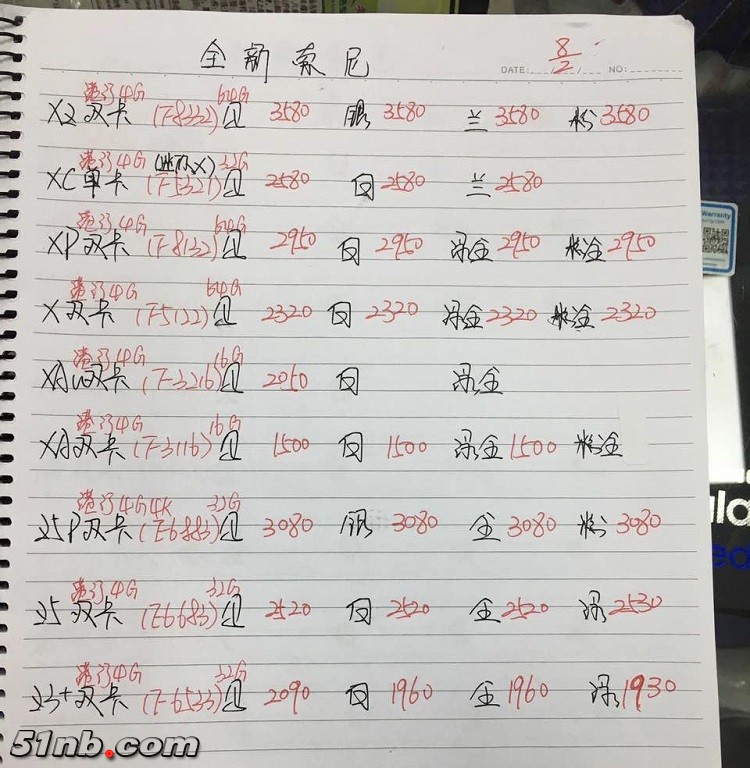 全新索尼
DATE: 8/2 NO:
港行4G 64G
XZ双卡 (F8332) 黑 3580 银 3580 兰 3580 粉 3580
港行4G (迷你X) 32G
XC单卡 (F5321) 黑 2580 白 2580 兰 2580
港行4G 64G
XP双卡 (F8132) 黑 2950 白 2950 深金 2950 粉金 2950
港行4G 64G
X双卡 (F5122) 黑 2320 白 2320 深金 2320 粉金 2320
港行4G 16G
XAu双卡 (F3216) 黑 2050 白 深金
港行4G 16G
XA双卡 (F3116) 黑 1500 白 1500 深金 1500 粉金
港行4G 4K 32G
Z5P双卡 (E6883) 黑 3080 银 3080 金 3080 粉 3080
港行4G 32G
Z5双卡 (E6683) 黑 2520 白 2520 金 2520 绿 2530
港行4G 32G
Z3+双卡 (E6533) 黑 2090 白 1960 金 1960 绿 1930
Warranty
51nb.com